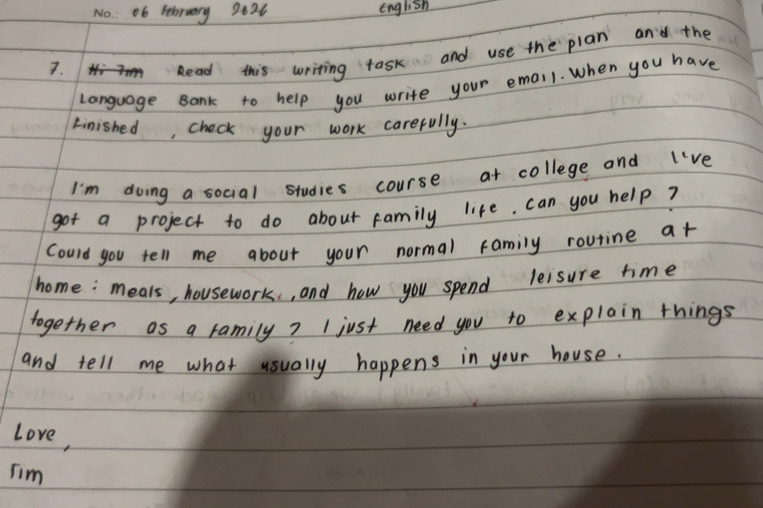 No.: 06 February 2026 English
7. Hi Tim Read this writing task and use the plan and the
Language Bank to help you write your email. When you have
finished, check your work carefully.
I'm doing a social studies course at college and I've
got a project to do about family life. Can you help?
Could you tell me about your normal family routine at
home: meals, housework, and how you spend leisure time
together as a family? I just need you to explain things
and tell me what usually happens in your house.
Love,
Tim